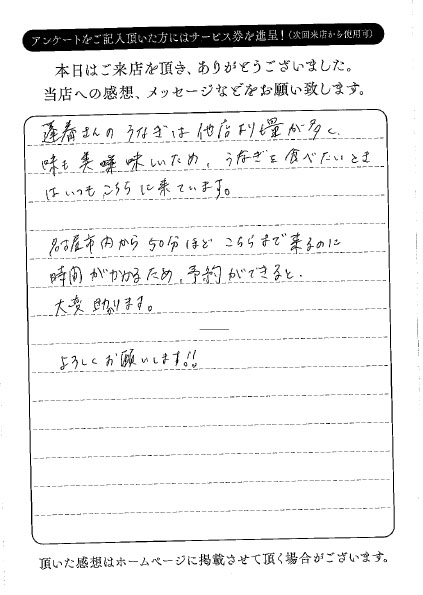 アンケートをご記入頂いた方にはサービス券を進呈！（次回来店から使用可）
本日はご来店を頂き、ありがとうございました。
当店への感想、メッセージなどをお願い致します。
蓬春さんのうなぎは他店より量が多く、
味も美味しいため、うなぎを食べたいとき
はいつもこちらに来ています。
名古屋市内から50分ほどこちらまで来るのに
時間がかかるため、予約ができると、
大変助かります。
よろしくお願いします!!
頂いた感想はホームページに掲載させて頂く場合がございます。